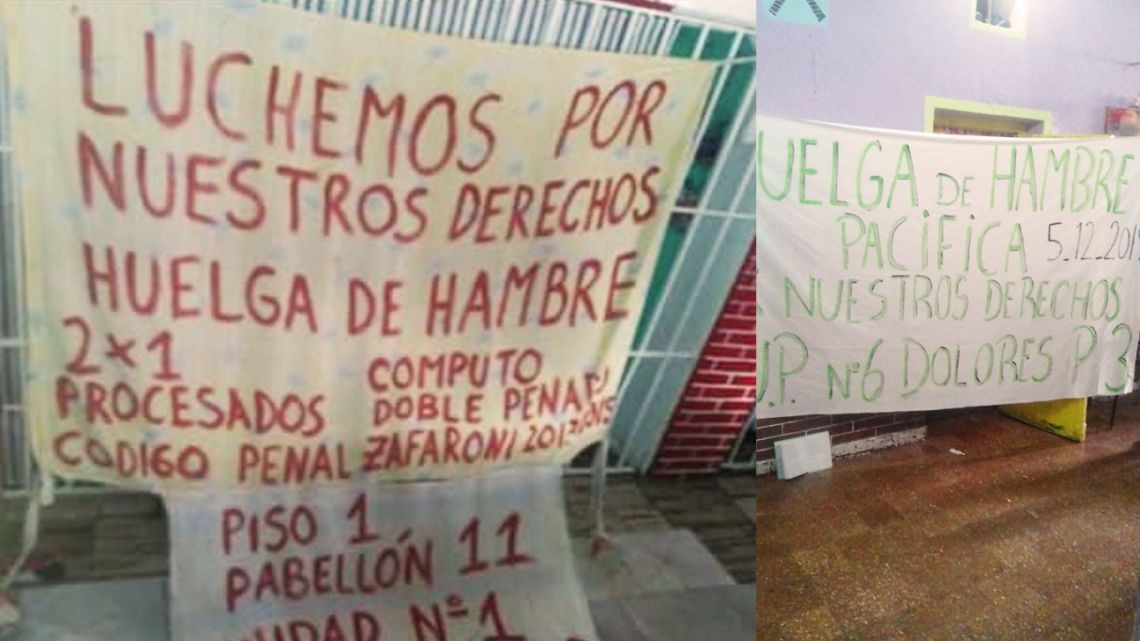 LUCHEMOS POR
NUESTROS DERECHOS
HUELGA DE HAMBRE
2x1
PROCESADOS
CODIGO PENAL
COMPUTO
DOBLE PENA
ZAFARONI
PISO 1
PABELLÓN 11
Nº 1
UELGA DE HAMBRE
PACIFICA 5_12_201
NUESTROS DERECHOS
.P. Nº6 DOLORES P 3